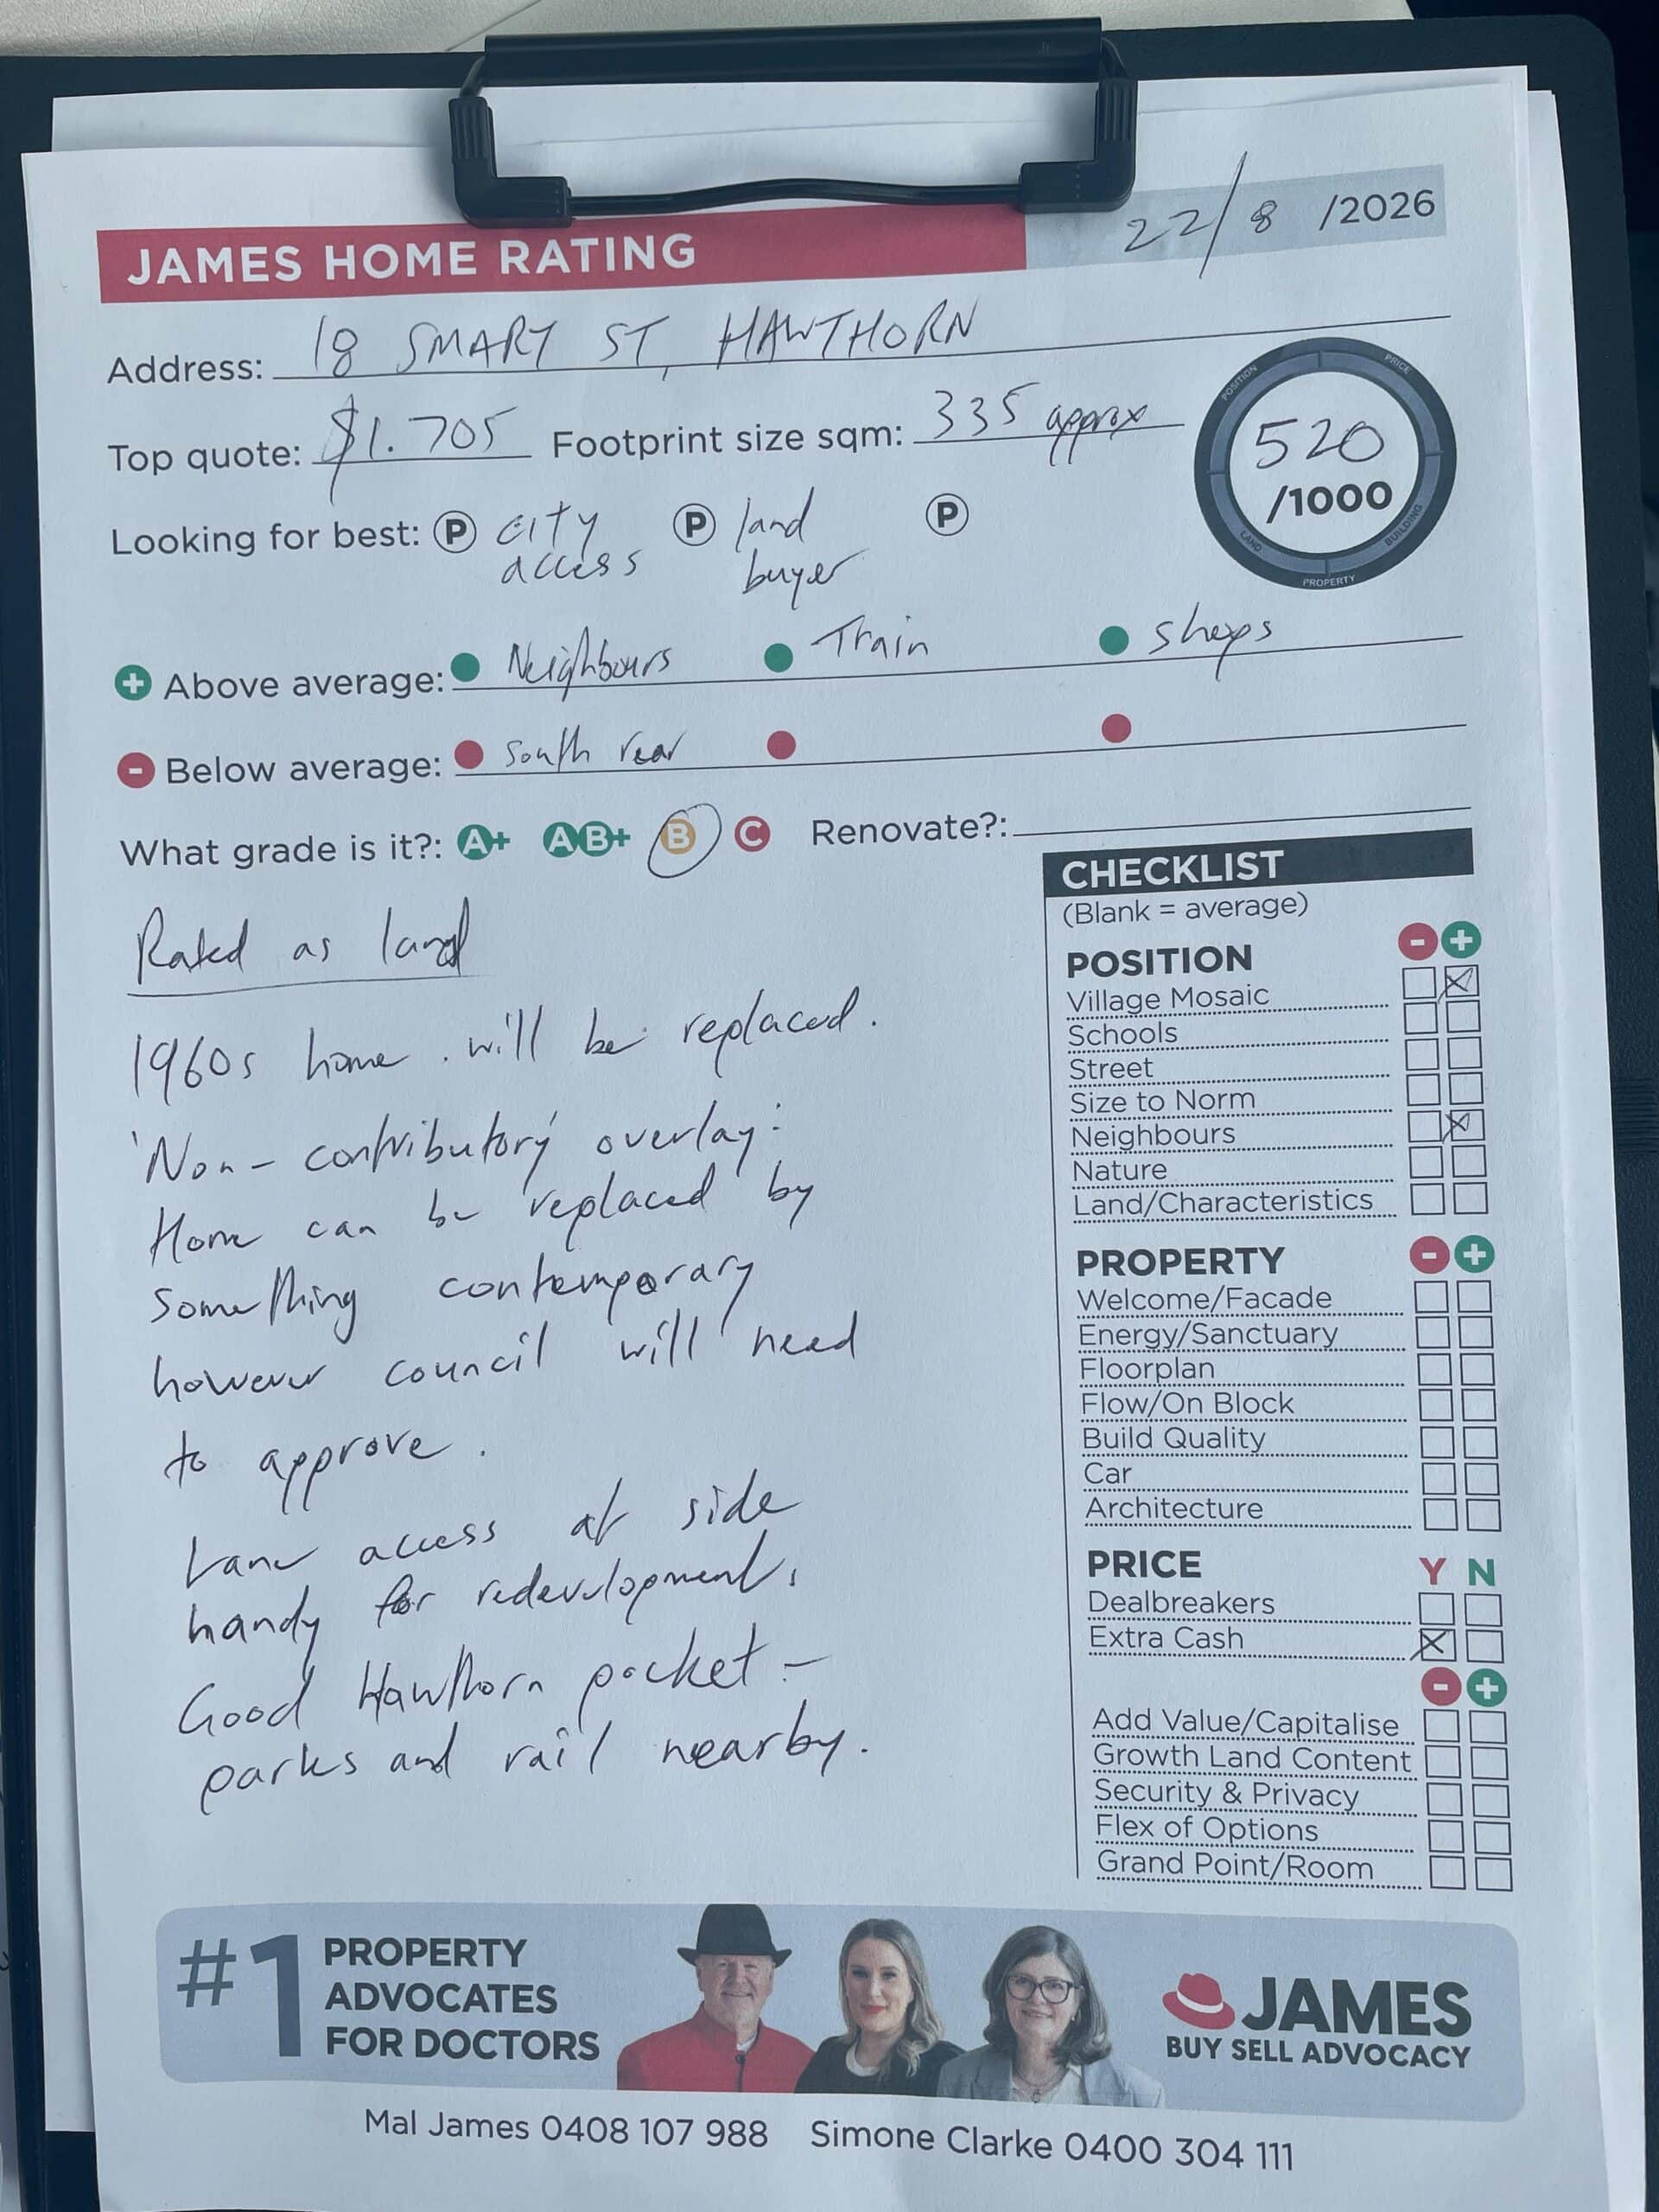 22/8 /2026
JAMES HOME RATING
Address: 18 SMART ST, HAWTHORN
Top quote: $1.705 Footprint size sqm: 335 approx
POSITION PRICE BUILDING PROPERTY LAND
520
/1000
Looking for best: P city P land P
access buyer
+ Above average: Neighbours Train shops
- Below average: South rear
What grade is it?: A+ AB+ B C Renovate?:
Rated as land
1960s home will be replaced.
'Non-contributory' overlay:
Home can be replaced by
something contemporary
however council will need
to approve.
Lane access at side
handy for redevelopment.
Good Hawthorn pocket -
parks and rail nearby.
CHECKLIST
(Blank = average)
POSITION - +
Village Mosaic
Schools
Street
Size to Norm
Neighbours
Nature
Land/Characteristics
PROPERTY - +
Welcome/Facade
Energy/Sanctuary
Floorplan
Flow/On Block
Build Quality
Car
Architecture
PRICE Y N
Dealbreakers
Extra Cash
- +
Add Value/Capitalise
Growth Land Content
Security & Privacy
Flex of Options
Grand Point/Room
#1 PROPERTY
ADVOCATES
FOR DOCTORS
JAMES
BUY SELL ADVOCACY
Mal James 0408 107 988 Simone Clarke 0400 304 111